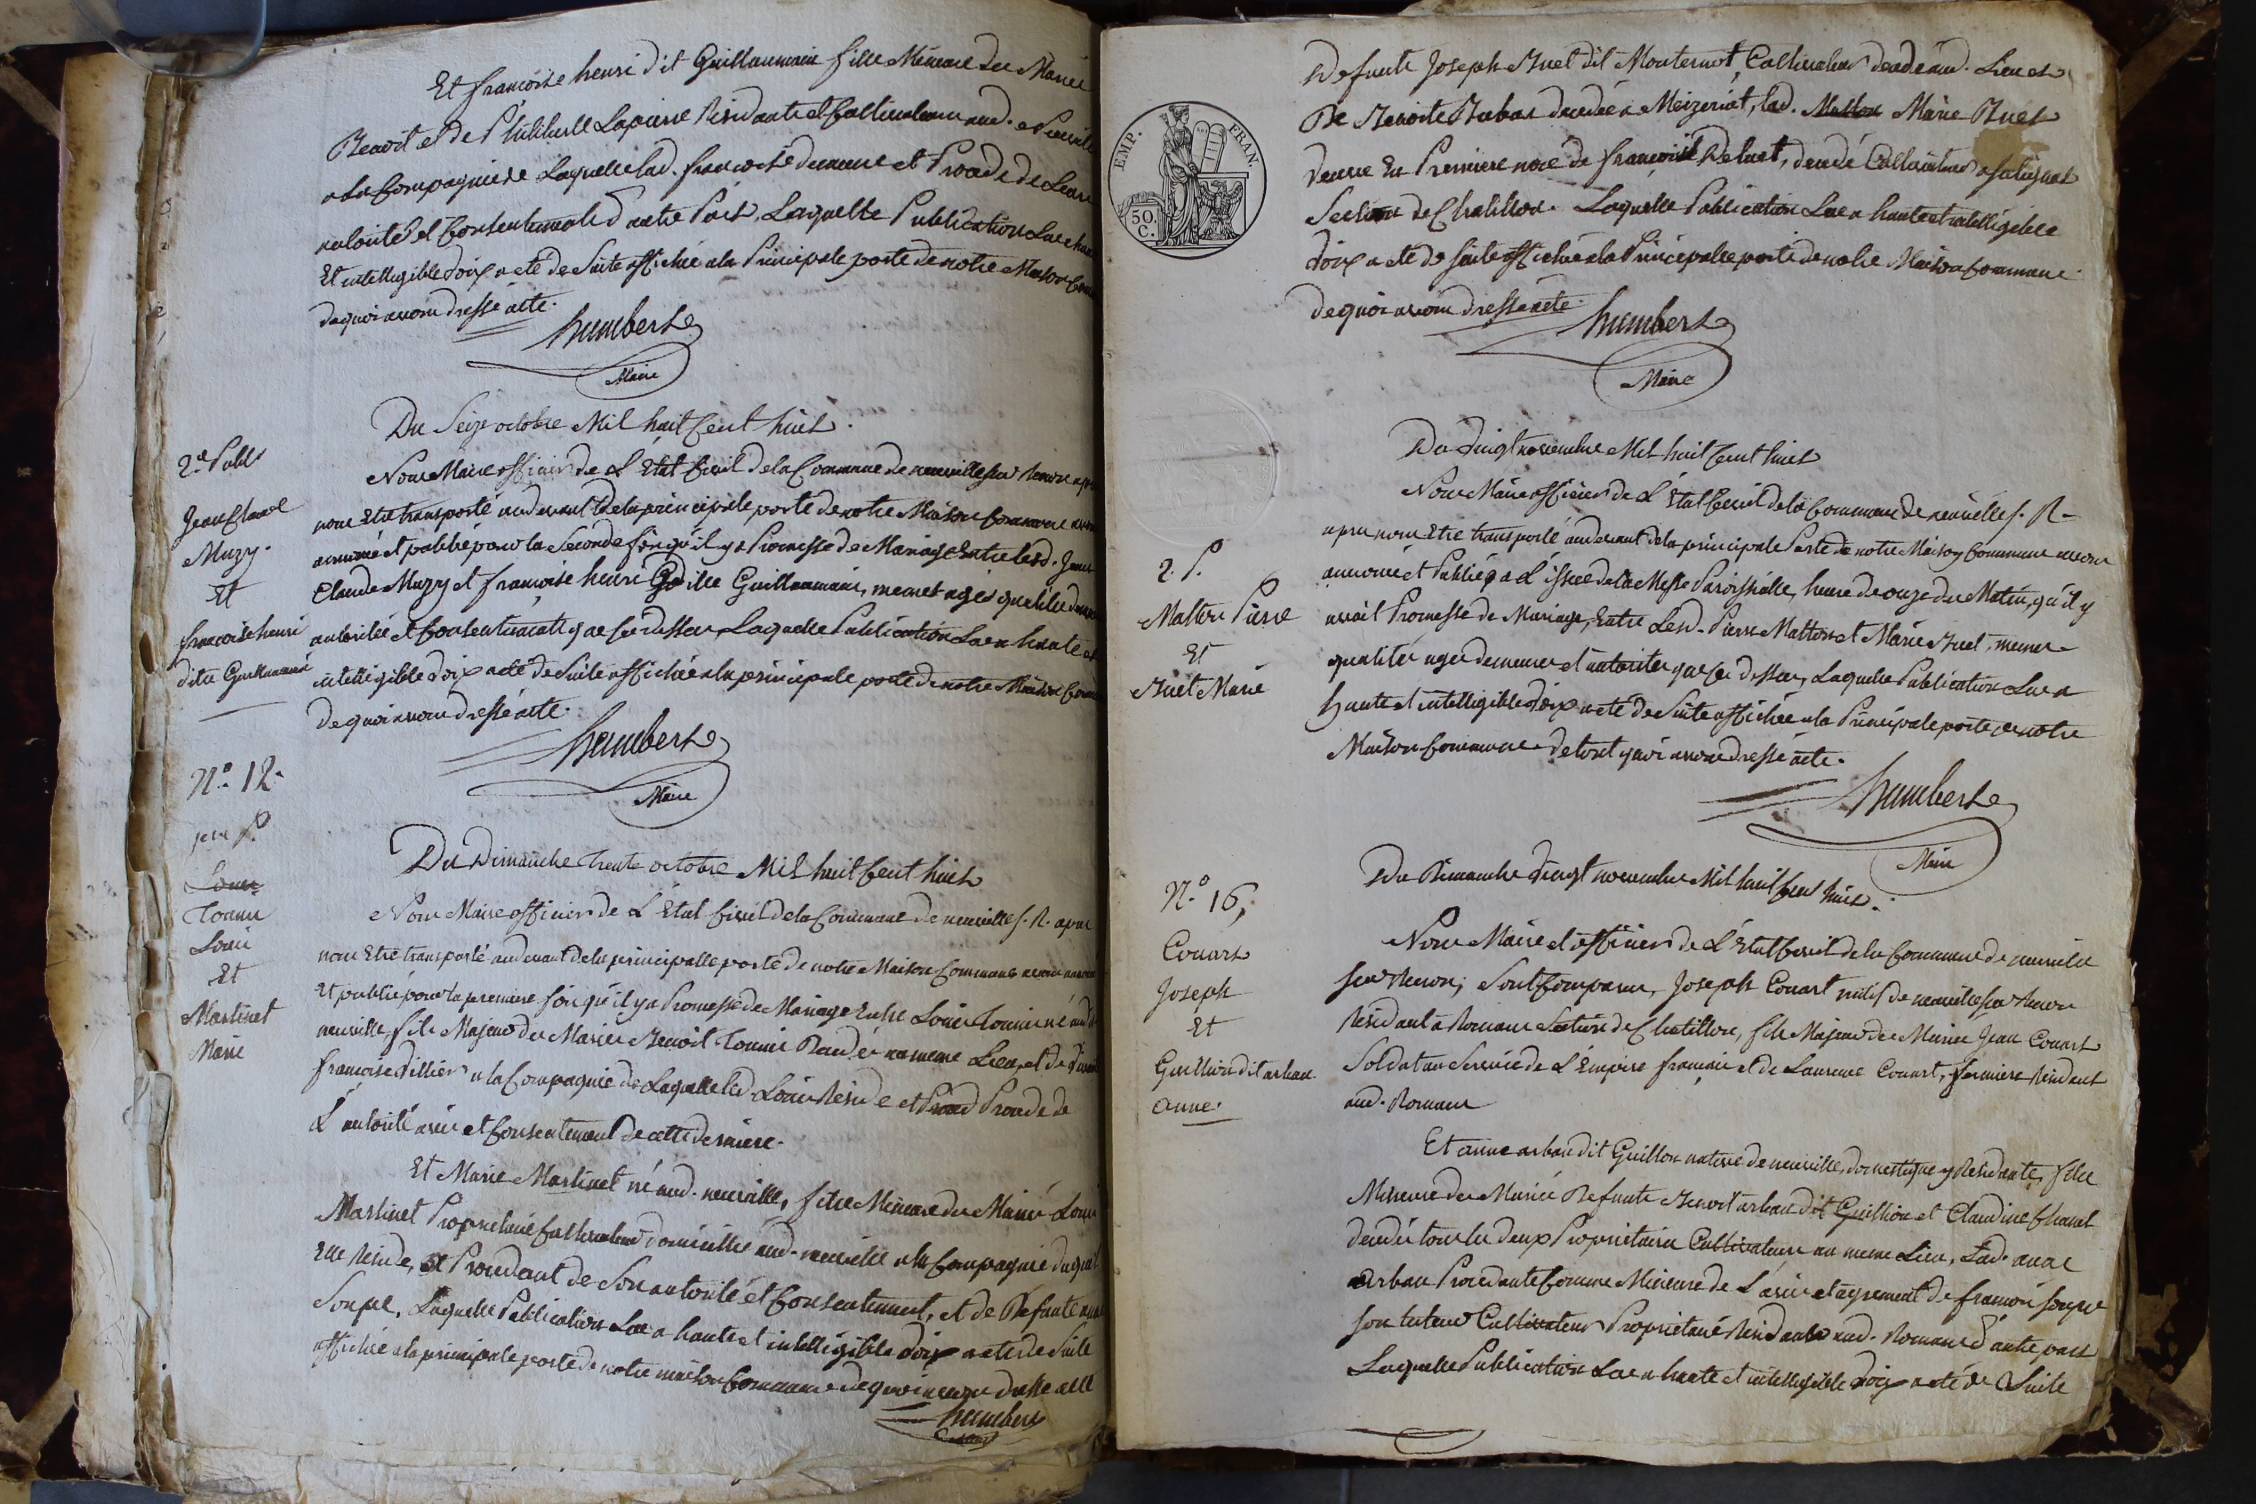 Et francoise henri dit Guillaumain fille Mineure de Marié
Benoit et de Philiberte Lapierre Résidante et Cultivateur aud.
a la Compagnie de Laquelle lad. francoise demeure et Procede de Leur
autorité et Consentement d'autre Part, Laquelle Publication Lue a haute
Et intelligible voix a eté de Suite affichée a la Principale porte de notre Maison
de quoi avons dressé acte.
humbert
Maire
Du Seize octobre Mil huit Cent huit.
2e Publ.
Jean Claude
Muzy.
Et
francoise henri
dite Guillaumain
Nous Maire officier de L'Etat Civil de la Commune de neuville sur Renon
nous Etre transporté au devant de la principale porte de notre Maison Commune avons
annoncé et publié pour la Seconde fois qu'il y a Promesse de Mariage Entre lesd. Jean
Claude Muzy et francoise henri dite Guillaumain, memes ages qualités
autorité et Consentement que ci dessus, Laquelle Publication Lue a haute et
intelligible voix a eté de Suite affichée a la principale porte de notre Maison
de quoi avons dressé acte.
humbert
Maire
N.o 12.
P.
Louis
Et
Martinet
Marie
Du Dimanche trente octobre Mil huit Cent huit
Nous Maire officier de L'Etat Civil de la Commune de neuville s. R. apres
nous Etre transporté au devant de la principalle porte de notre Maison Commune avons
Et publié pour la premiere fois qu'il y a Promesse de Mariage Entre Louis Tonnu né aud.
neuville, fils Majeur de Marié Benoit Tonnu au meme Lieu, et de
francoise Villier a la Compagnie de Laquelle led. Louis Reside et Procede de
L'autorité avis et Consentement de cette derniere.
Et Marie Martinet né aud. neuville, fille Mineure de Marié Louis
Martinet Propriétaire Cultivateur domicilié aud. neuville a la Compagnie duquel
Elle Reside, et Procedant de Son autorité et Consentement, et de Defunte
Soupe, Laquelle Publication Lue a haute et intelligible voix a eté de Suite
affichée a la principale porte de notre maison Commune de quoi avons dressé acte
humbert
Maire
EMP. FRAN.
50.
C.
Defunts Joseph Buet dit Monternot, Cultivateur decedé aud. Lieu et
De Benoite decedée a Meizeriat, lad. Marie Buet
veuve En Premiere noce de francois Deluet, decedé Cultivateur a
Section de Chatillon. Laquelle Publication Lue a haute et intelligible
voix a eté de Suite affichée a la Principalle porte de notre Maison Commune
de quoi avons dressé acte.
humbert
Maire
Du vingt novembre Mil huit Cent huit
2. P.
Matton Pierre
Et
Buet Marie
Nous Maire officier de L'Etat Civil de la Commune de neuville s. R.
apres nous Etre transporté au devant de la principale Porte de notre Maison Commune avons
annoncé et Publié a L'issue de la Messe Paroissialle, heure de onze du Matin, qu'il y
avait Promesse de Mariage, Entre Lesd. Pierre Matton et Marie Buet, memes
qualités ages demeures et autorités que ci dessus, Laquelle Publication Lue a
haute et intelligible voix a eté de Suite affichée a la Principale porte de notre
Maison Commune de tout quoi avons dressé acte.
humbert
Maire
Du Dimanche vingt novembre Mil huit Cent huit.
N.o 16,
Couart
Joseph
Et
Guillion dit arbau
anne.
Nous Maire et officier de L'Etat Civil de la Commune de neuville
sur Renon; Sont Comparus, Joseph Couart natif de neuville sur Renon
Résidant a Romans Section de Chatillon, fils Majeur de Marié Jean Couart
Soldat au Service de L'Empire francais et de Laurence Couart, fermiere Résidant
aud. Romans
Et anne arbau dit Guillon native de neuville, domestique y Résidante, fille
Mineure de Marié Defunts Benoit arbau dit Guillion et Claudine
decedés tous les deux Propriétaires Cultivateurs au meme Lieu, Lad. anne
Arbau Procedante Comme Mineure de L'avis et agrement de francois Soupe
son tuteur Cultivateur Propriétaire Résidant aud. Romans d'autre part
Laquelle Publication Lue a haute et intelligible voix a eté de Suite